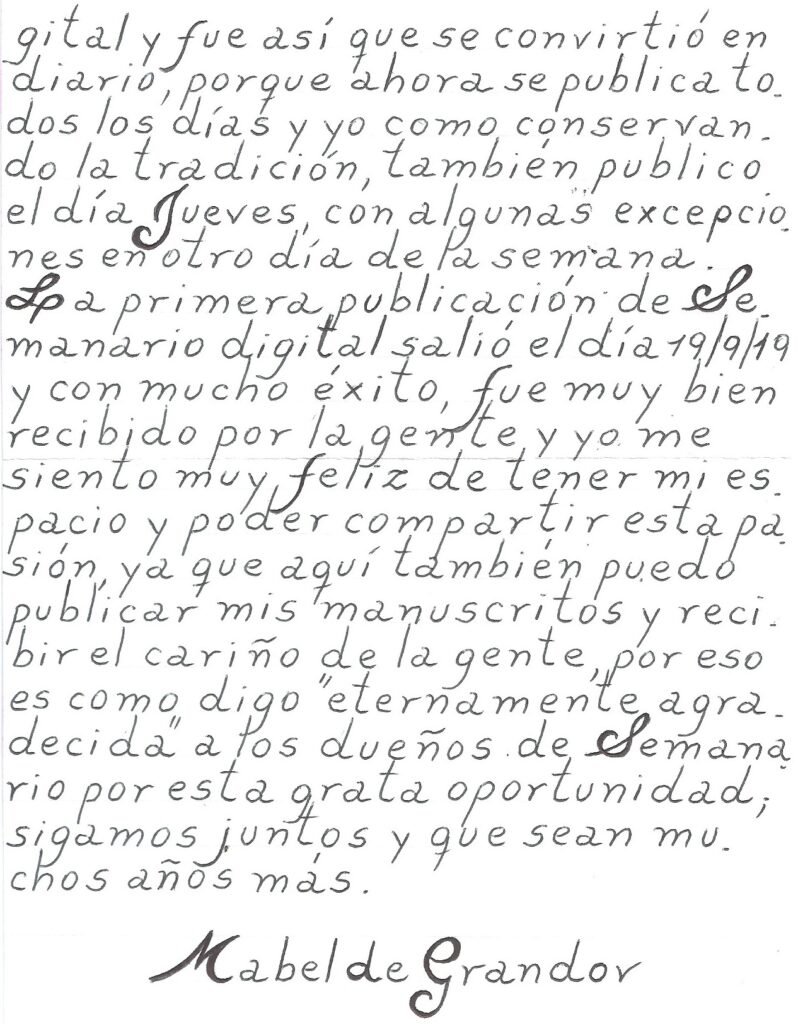 gital y fue así que se convirtió en
diario, porque ahora se publica to.
dos los días y yo como conservan.
do la tradición, también publico
el día Jueves, con algunas excepcio.
nes en otro día de la semana.
La primera publicación de Se.
manario digital salió el día 19/9/19
y con mucho éxito, fue muy bien
recibido por la gente, y yo me
siento muy feliz de tener mi es.
pacio y poder compartir esta pa.
sión, ya que aquí también puedo
publicar mis manuscritos y reci.
bir el cariño de la gente, por eso
es como digo "eternamente agra.
decida" a los dueños de Semana.
rio por esta grata oportunidad;
sigamos juntos y que sean mu.
chos años más.
Mabel de Grandov